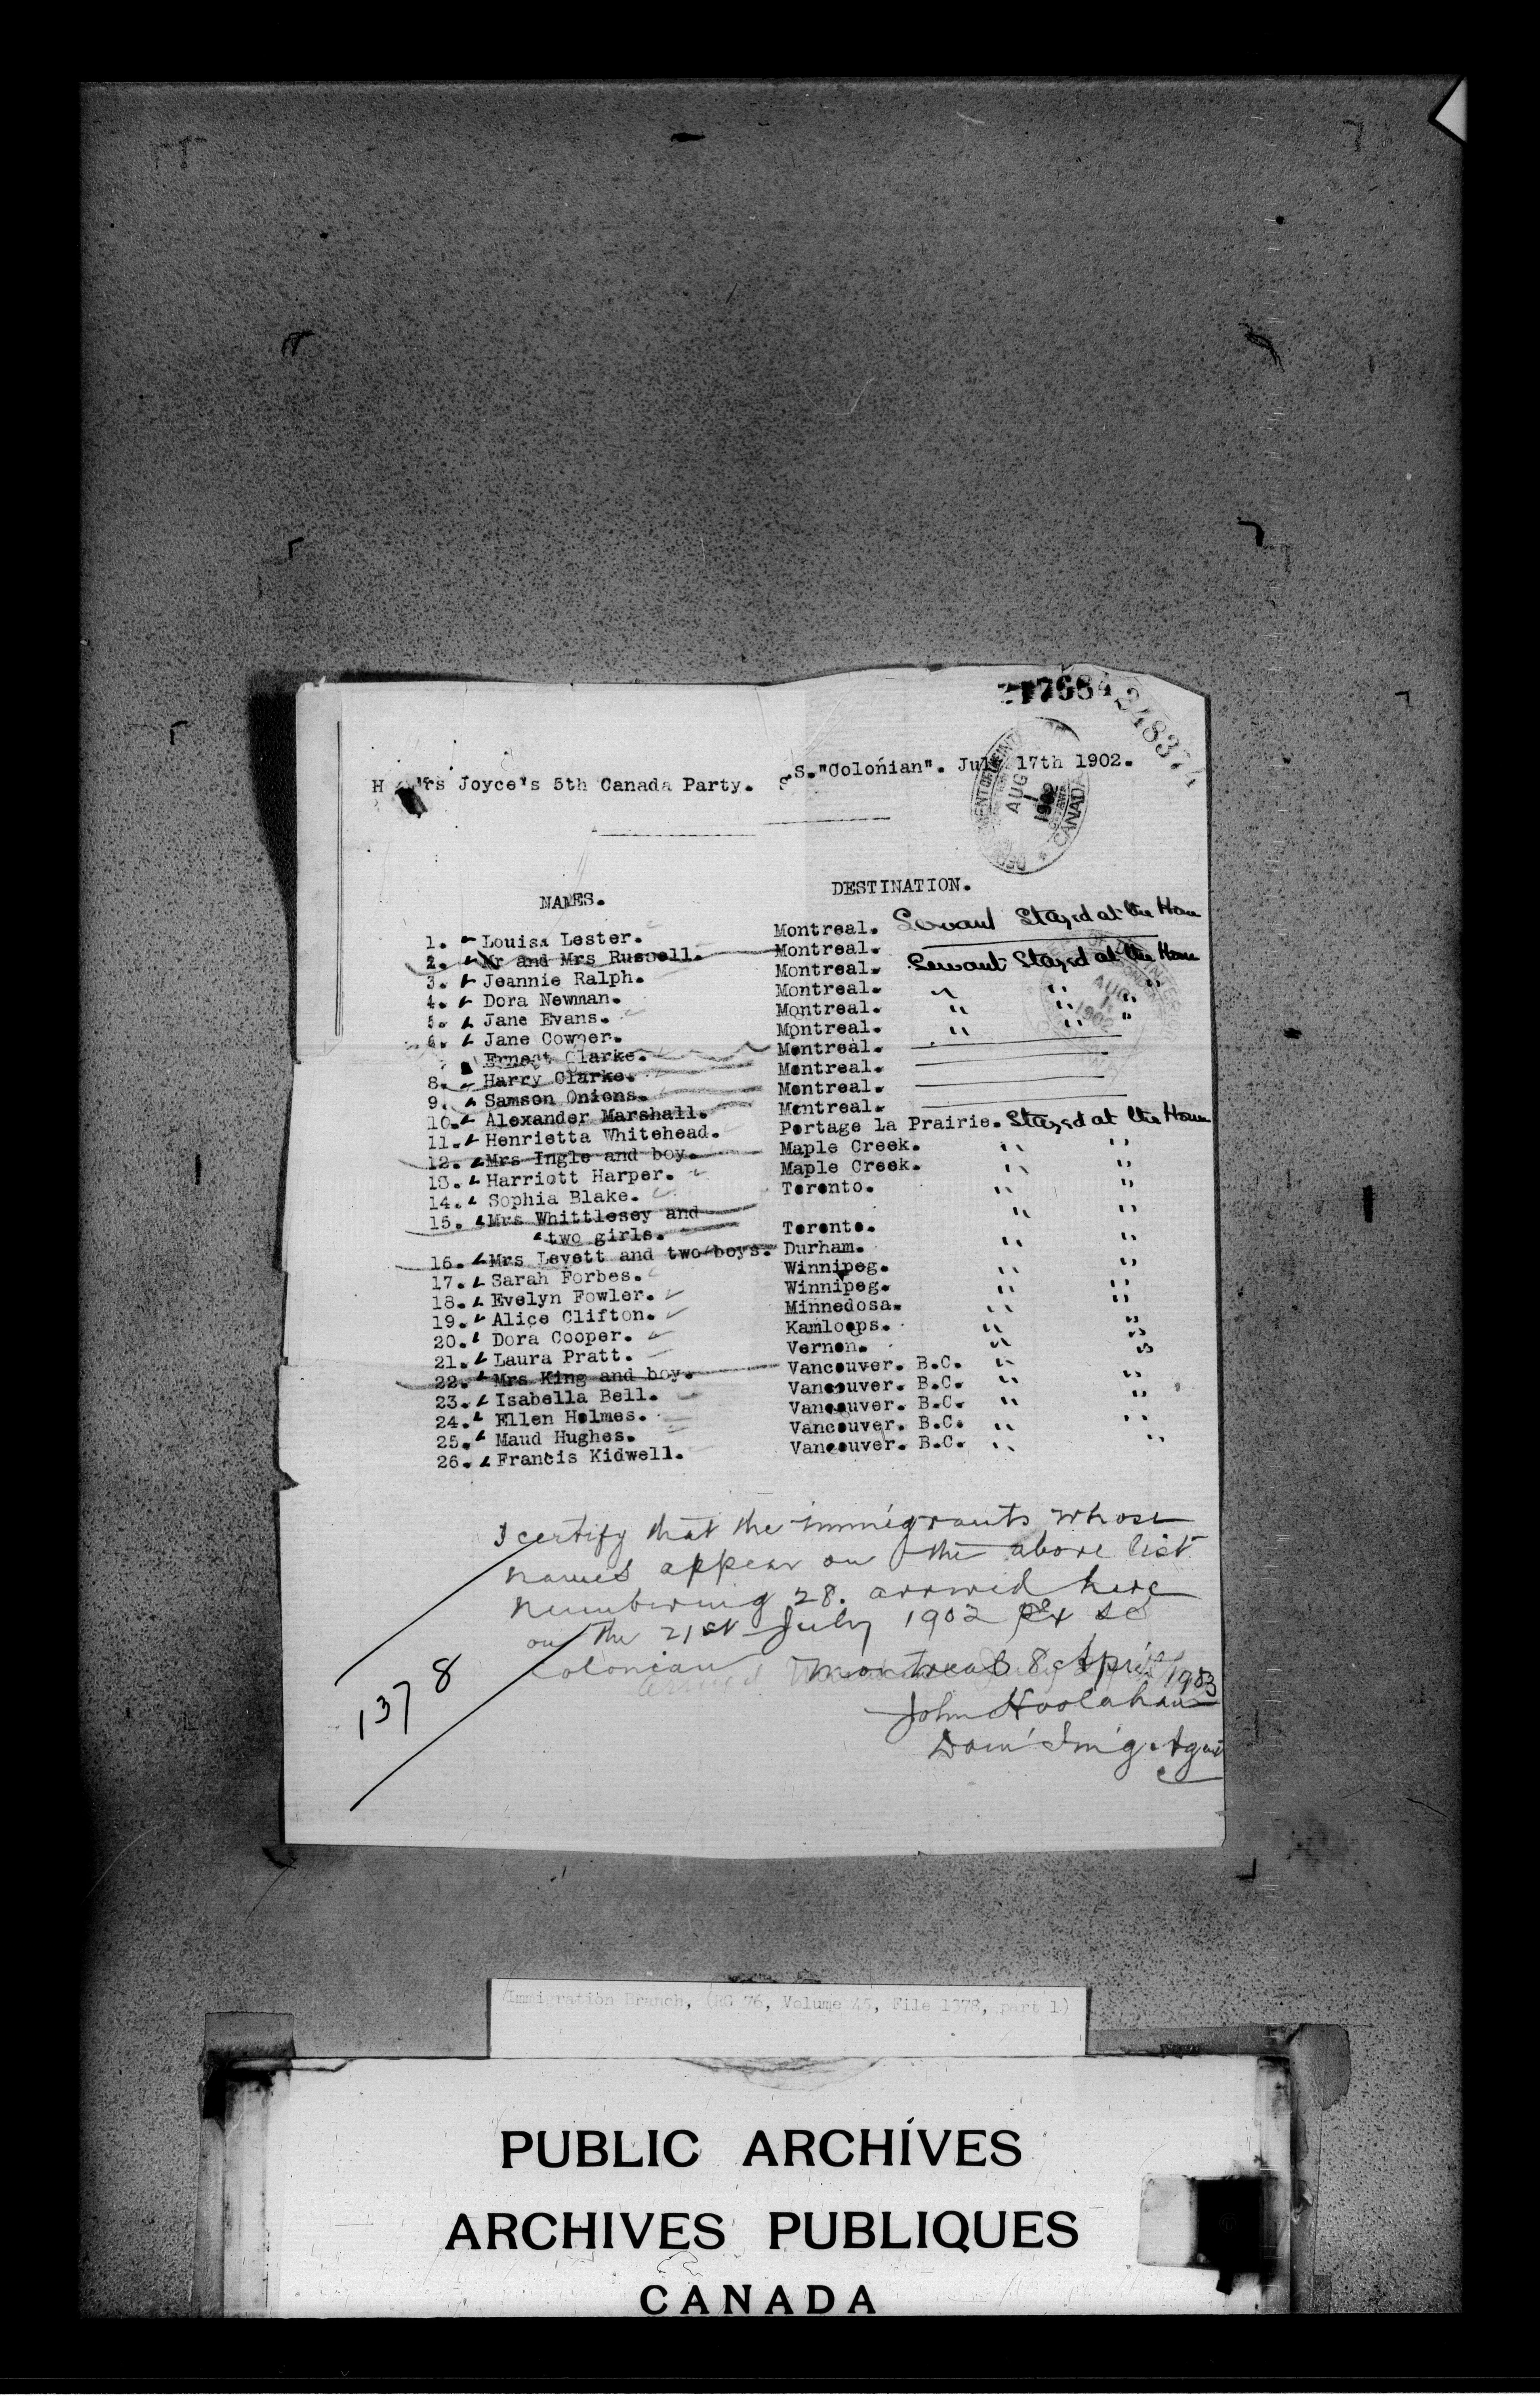 217684
348374
DEPARTMENT OF THE INTERIOR
AUG 1 1902
CANADA
Mrs Joyce's 5th Canada Party. S.S."Colonian". July 17th 1902.
NAMES. DESTINATION.
1. Louisa Lester. Montreal. Servant Stayed at the Home
2. Mr and Mrs Russell. Montreal.
3. Jeannie Ralph. Montreal. Servant Stayed at the Home
4. Dora Newman. Montreal. " " "
5. Jane Evans. Montreal. " " "
6. Jane Cowper. Montreal. " " "
Ernest Clarke. Montreal.
8. Harry Clarke. Montreal.
9. Samson Onions. Montreal.
10. Alexander Marshall. Montreal.
11. Henrietta Whitehead. Portage la Prairie. Stayed at the Home
12. Mrs Ingle and boy. Maple Creek. " "
13. Harriott Harper. Maple Creek. " "
14. Sophia Blake. Toronto. " "
15. Mrs Whittlesey and " "
two girls. Toronto.
16. Mrs Levett and two boys. Durham. " "
17. Sarah Forbes. Winnipeg. " "
18. Evelyn Fowler. Winnipeg. " "
19. Alice Clifton. Minnedosa. " "
20. Dora Cooper. Kamloops. " "
21. Laura Pratt. Vernon. " "
22. Mrs King and boy. Vancouver. B.C. " "
23. Isabella Bell. Vancouver. B.C. " "
24. Ellen Holmes. Vancouver. B.C. " "
25. Maud Hughes. Vancouver. B.C. " "
26. Francis Kidwell. Vancouver. B.C. " "
I certify that the immigrants whose
names appear on the above list
numbering 28. arrived here
on the 21st July 1902 Ex SS
Colonian Montreal 8 April 1903
1378
John Hoolahan
Dom' Im'g. Agent
Immigration Branch, (RG 76, Volume 45, File 1378, part 1)
PUBLIC ARCHIVES
ARCHIVES PUBLIQUES
CANADA